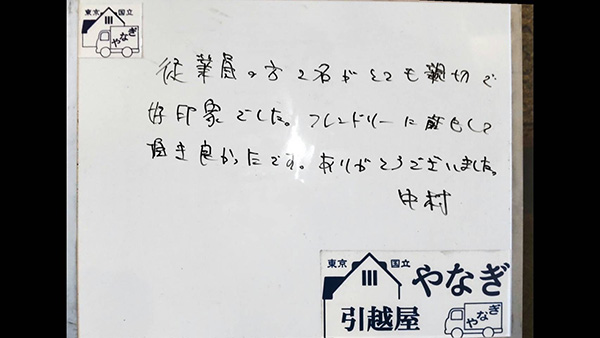 東京 国立
やなぎ
従業員の方2名がとても親切で
好印象でした。フレンドリーに話もして
頂き良かったです。ありがとうございました。
中村
東京 国立 やなぎ
引越屋 やなぎ